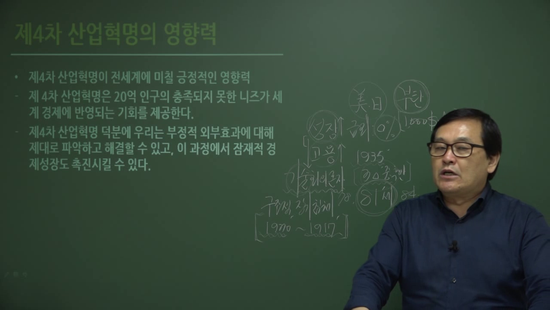 제4차 산업혁명의 영향력
• 제4차 산업혁명이 전세계에 미칠 긍정적인 영향력
• 제 4차 산업혁명은 20억 인구의 충족되지 못한 니즈가 세
계 경제에 반영되는 기회를 제공한다.
• 제4차 산업혁명 덕분에 우리는 부정적 외부효과에 대해
제대로 파악하고 해결할 수 있고, 이 과정에서 잠재적 경
제성장도 촉진시킬 수 있다.
美日
0%
고용↑
1935
61세